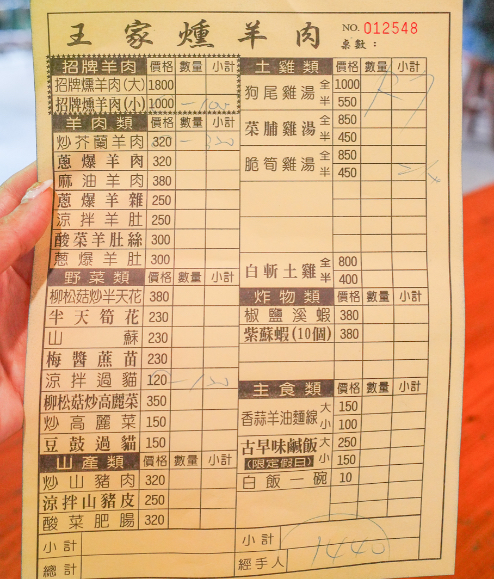 王家燻羊肉
NO. 012548
桌數：
招牌羊肉 價格 數量 小計
招牌燻羊肉(大) 1800
招牌燻羊肉(小) 1000
羊肉類 價格 數量 小計
炒芥蘭羊肉 320
蔥爆羊肉 320
麻油羊肉 380
蔥爆羊雜 250
涼拌羊肚 250
酸菜羊肚絲 300
蔥爆羊肚 300
野菜類 價格 數量 小計
柳松菇炒半天花 380
半天筍花 230
山蘇 230
梅醬蔗苗 230
涼拌過貓 120
柳松菇炒高麗菜 350
炒高麗菜 150
豆鼓過貓 150
山產類 價格 數量 小計
炒山豬肉 320
涼拌山豬皮 250
酸菜肥腸 320
小計
總計
土雞類 價格 數量 小計
狗尾雞湯 全 1000
半 550
菜脯雞湯 全 850
半 450
脆筍雞湯 全 850
半 450
白斬土雞 全 800
半 400
炸物類 價格 數量 小計
椒鹽溪蝦 380
紫蘇蝦(10個) 380
主食類 價格 數量 小計
香蒜羊油麵線 大 150
小 100
古早味鹹飯 大 250
(限定假日) 小 150
白飯一碗 10
小計
經手人 1440